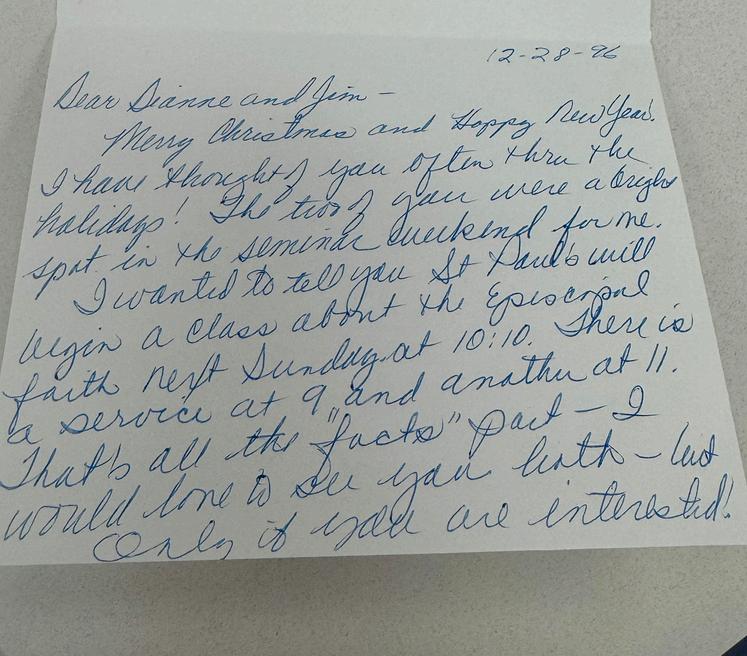 12-28-96
Dear Dianne and Jim -
Merry Christmas and Happy New Year.
I have thought of you often thru the
holidays! The two of you were a bright
spot in the seminar weekend for me.
I wanted to tell you St Paul's will
begin a class about the Episcopal
faith next Sunday at 10:10. There is
a service at 9, and another at 11.
That's all the "facts" part - I
would love to see you both - but
Only if you are interested!